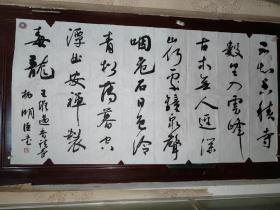 不知香积寺
数里入雲峰
古木無人迳深
山何處鐘泉聲
咽危石日色冷
青松薄暮空
潭曲安禪製
毒龍
王維過香積寺
楊明臣書